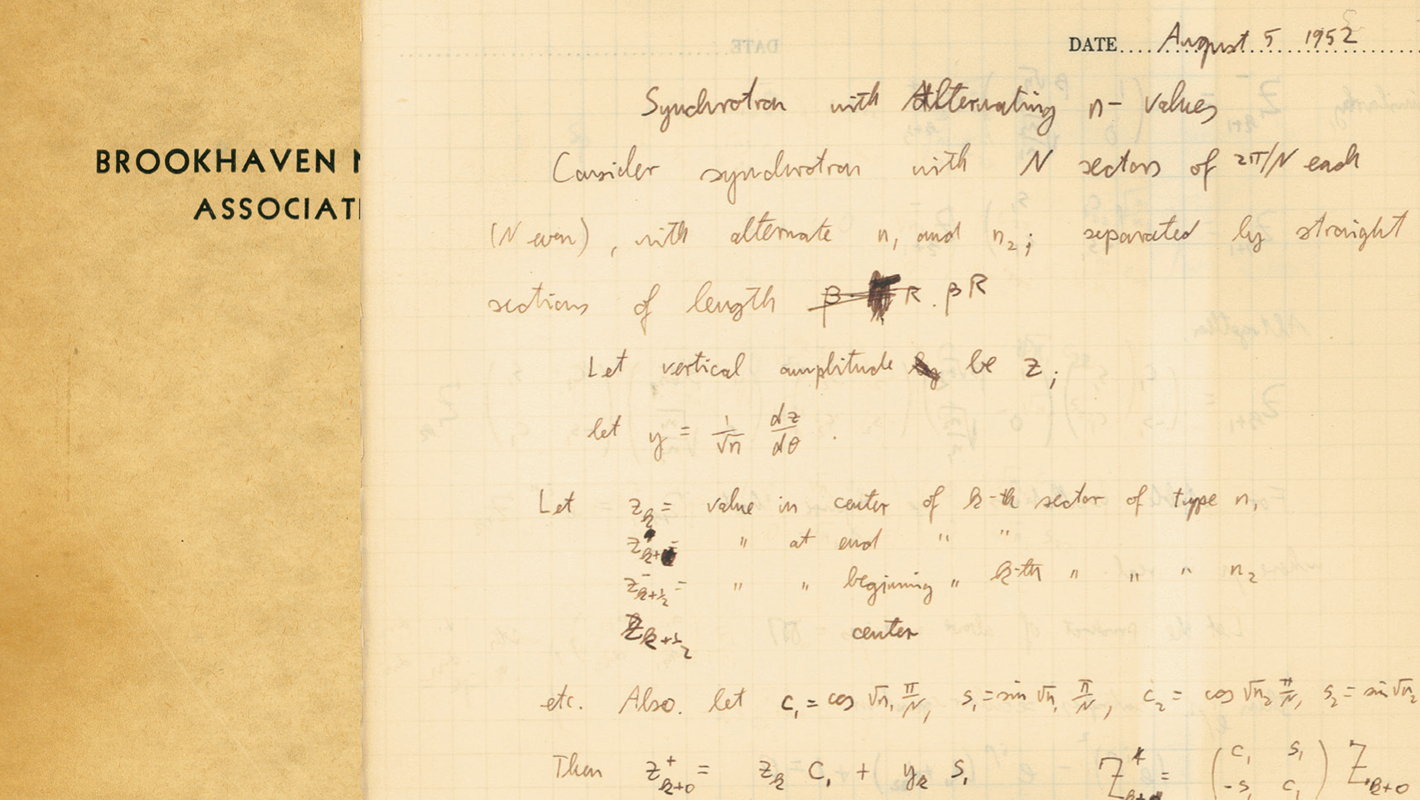 BROOKHAVEN
ASSOCIATI
DATE.... August 5 1952
Synchrotron with Alternating n- values
Consider synchrotron with N sectors of 2π/N each
(N even), with alternate n₁ and n₂; separated by straight
sections of length βR
Let vertical amplitude be z;
let y = 1/√n dz/dθ.
Let z_k = value in center of k-th sector of type n₁
z⁺_k+0 = " at end " "
z⁻_k+½ = " " beginning " k-th " " " n₂
z_k+½ center
etc. Also let c₁ = cos √n₁ π/N, s₁ = sin √n₁ π/N, c₂ = cos √n₂ π/N, s₂ = sin √n₂
Then z⁺_k+0 = z_k C₁ + y_k S₁ Z⁺_k+0 = (c₁ s₁ / -s₁ c₁) Z_k+0